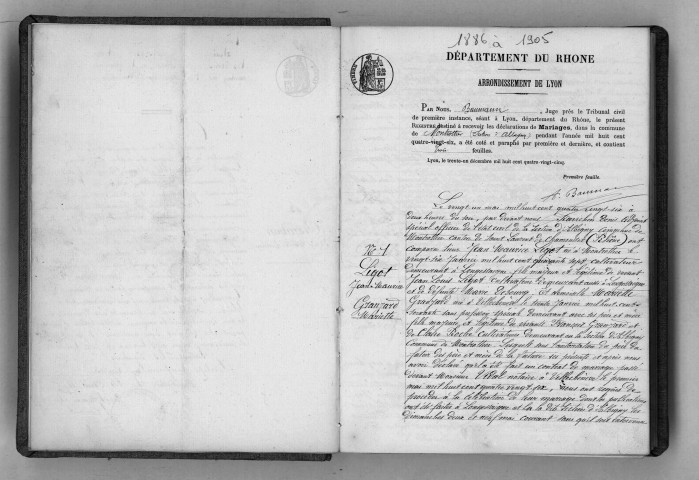 1886 à 1905
DÉPARTEMENT DU RHONE
ARRONDISSEMENT DE LYON
PAR NOUS, Baumann, Juge près le Tribunal civil
de première instance, séant à Lyon, département du Rhône, le présent
REGISTRE destiné à recevoir les déclarations de Mariages, dans la commune
de Montrottier (Section d'Albigny) pendant l'année mil huit cent
quatre-vingt-six, a été coté et paraphé par première et dernière, et contient
trois feuilles.
Lyon, le trente-un décembre mil huit cent quatre-vingt-cinq.
Première feuille.
Baumann
N° 1
Ligot
Jean Maurice
Granjard
Mariette
Le vingt un mai mil huit cent quatre vingt six à
deux heures du soir, par devant nous Denis adjoint
spécial officier de l'état civil de la Section d'Albigny commune de
Montrottier canton de Saint Laurent de Chamousset (Rhône) ont
comparu Sieur Jean Maurice Ligot né à Montrottier
vingt six Janvier mil huit cent quarante sept, cultivateur
demeurant à Longessaigne, fils majeur et légitime de vivant
Jean Louis Ligot cultivateur demeurant aussi à Longessaigne
et de défunte Marie Et demoiselle Mariette
Granjard née à Villechenève le trente Janvier mil huit cent
soixante sans profession spéciale demeurant avec ses père et mère
fille majeure et légitime de vivants François Granjard et
de Claire Roche cultivateurs demeurant en la Section d'Albigny
Commune de Montrottier. Lesquels sous l'autorisation du père du
futur des père et mère de la future ici présents et après nous
avoir déclaré qu'il a été fait un contrat de mariage passé
devant Monsieur notaire à Villechenève le premier
mai mil huit cent quatre vingt six, nous ont requis de
procéder à la célébration de leur mariage dont les publications
ont été faites à Longessaigne et en la dite Section d'Albigny les
dimanches deux et neuf mai courant sans qu'il soit